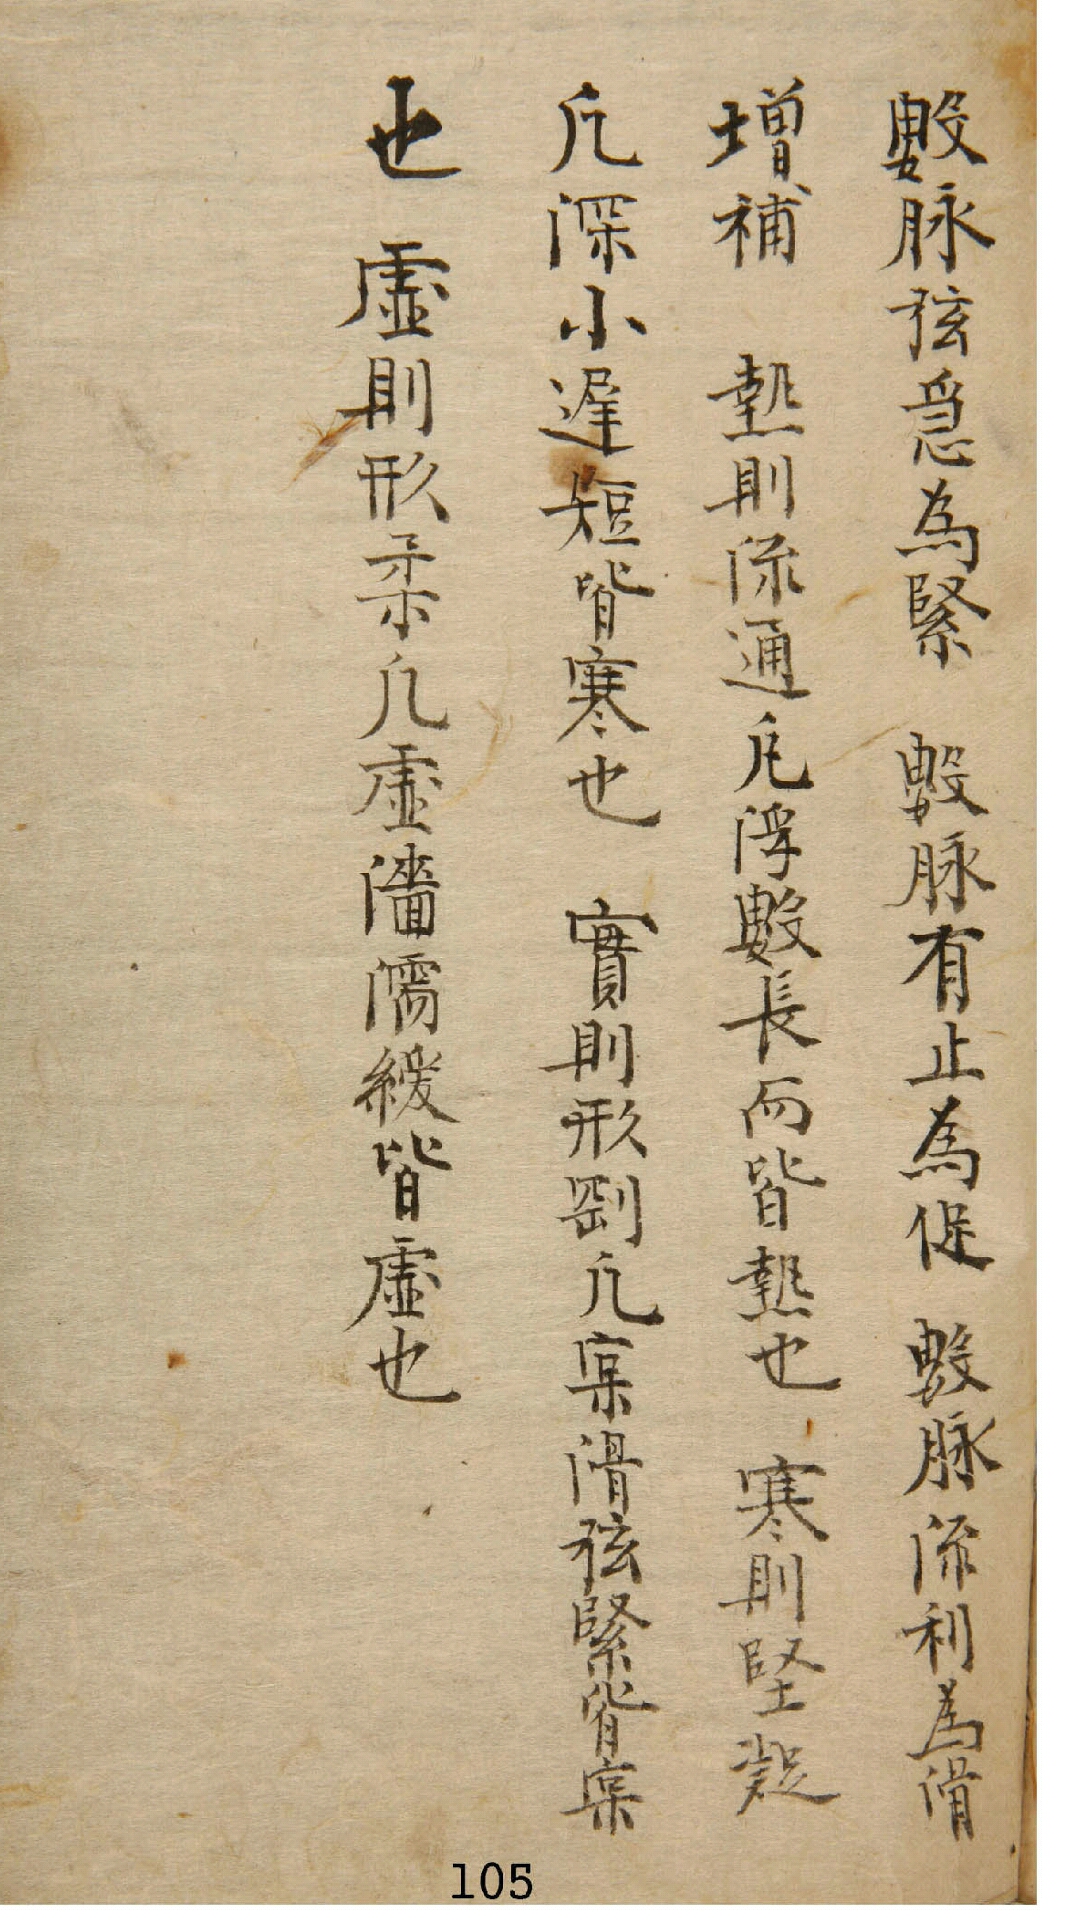 數脉弦急為緊 數脉有止為促 數脉流利為滑
增補 熱則流通凢浮數長而皆熱也 寒則堅凝
凢深小遲短皆寒也 實則形剛凢寔滑弦緊皆寔
也 虛則形柔凢虛濇濡緩皆虛也
105